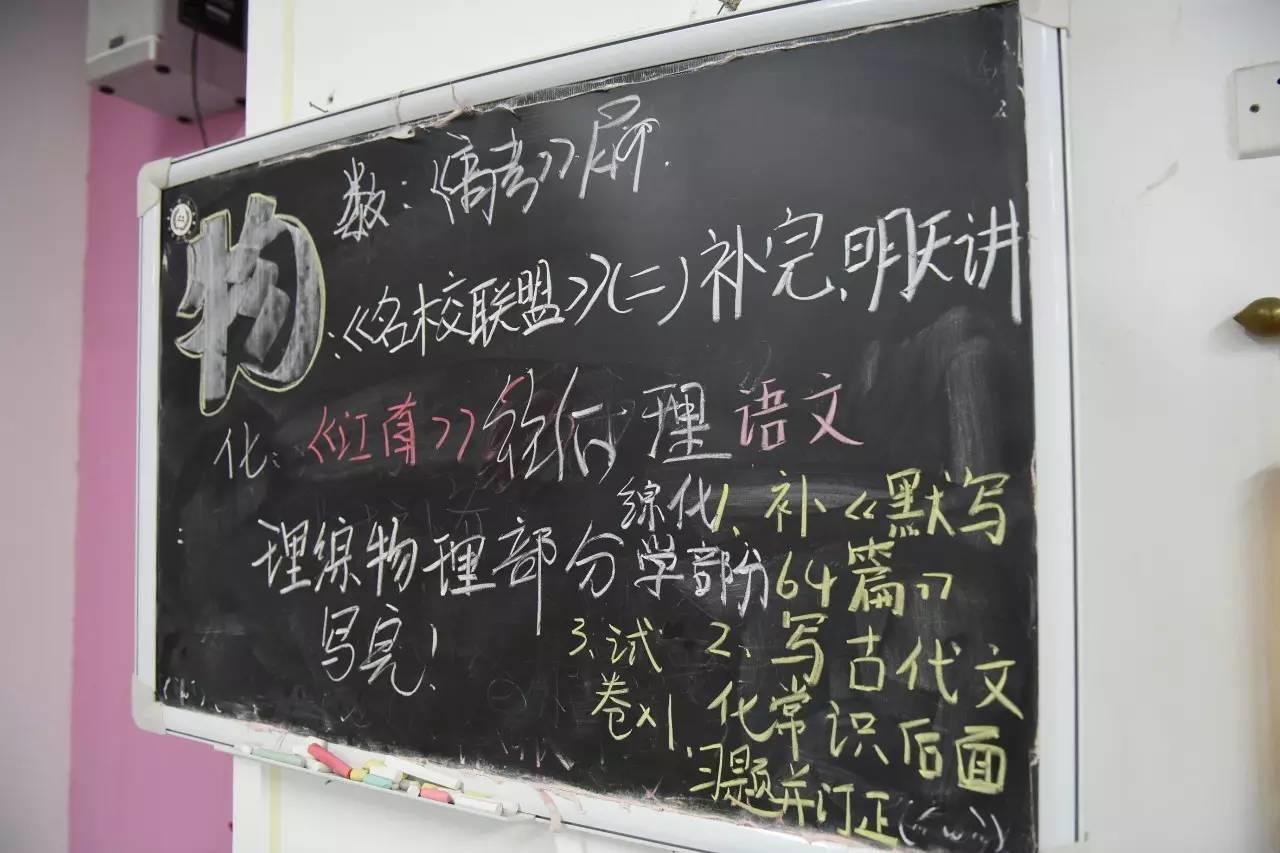 数:《高考》
物:《名校联盟》(二)补完,明天讲
化:《江南》
理综物理部分写完!
理综化学部分
语文
1、补《默写64篇》
2、写古代文化常识后面习题并订正
3、试卷×1